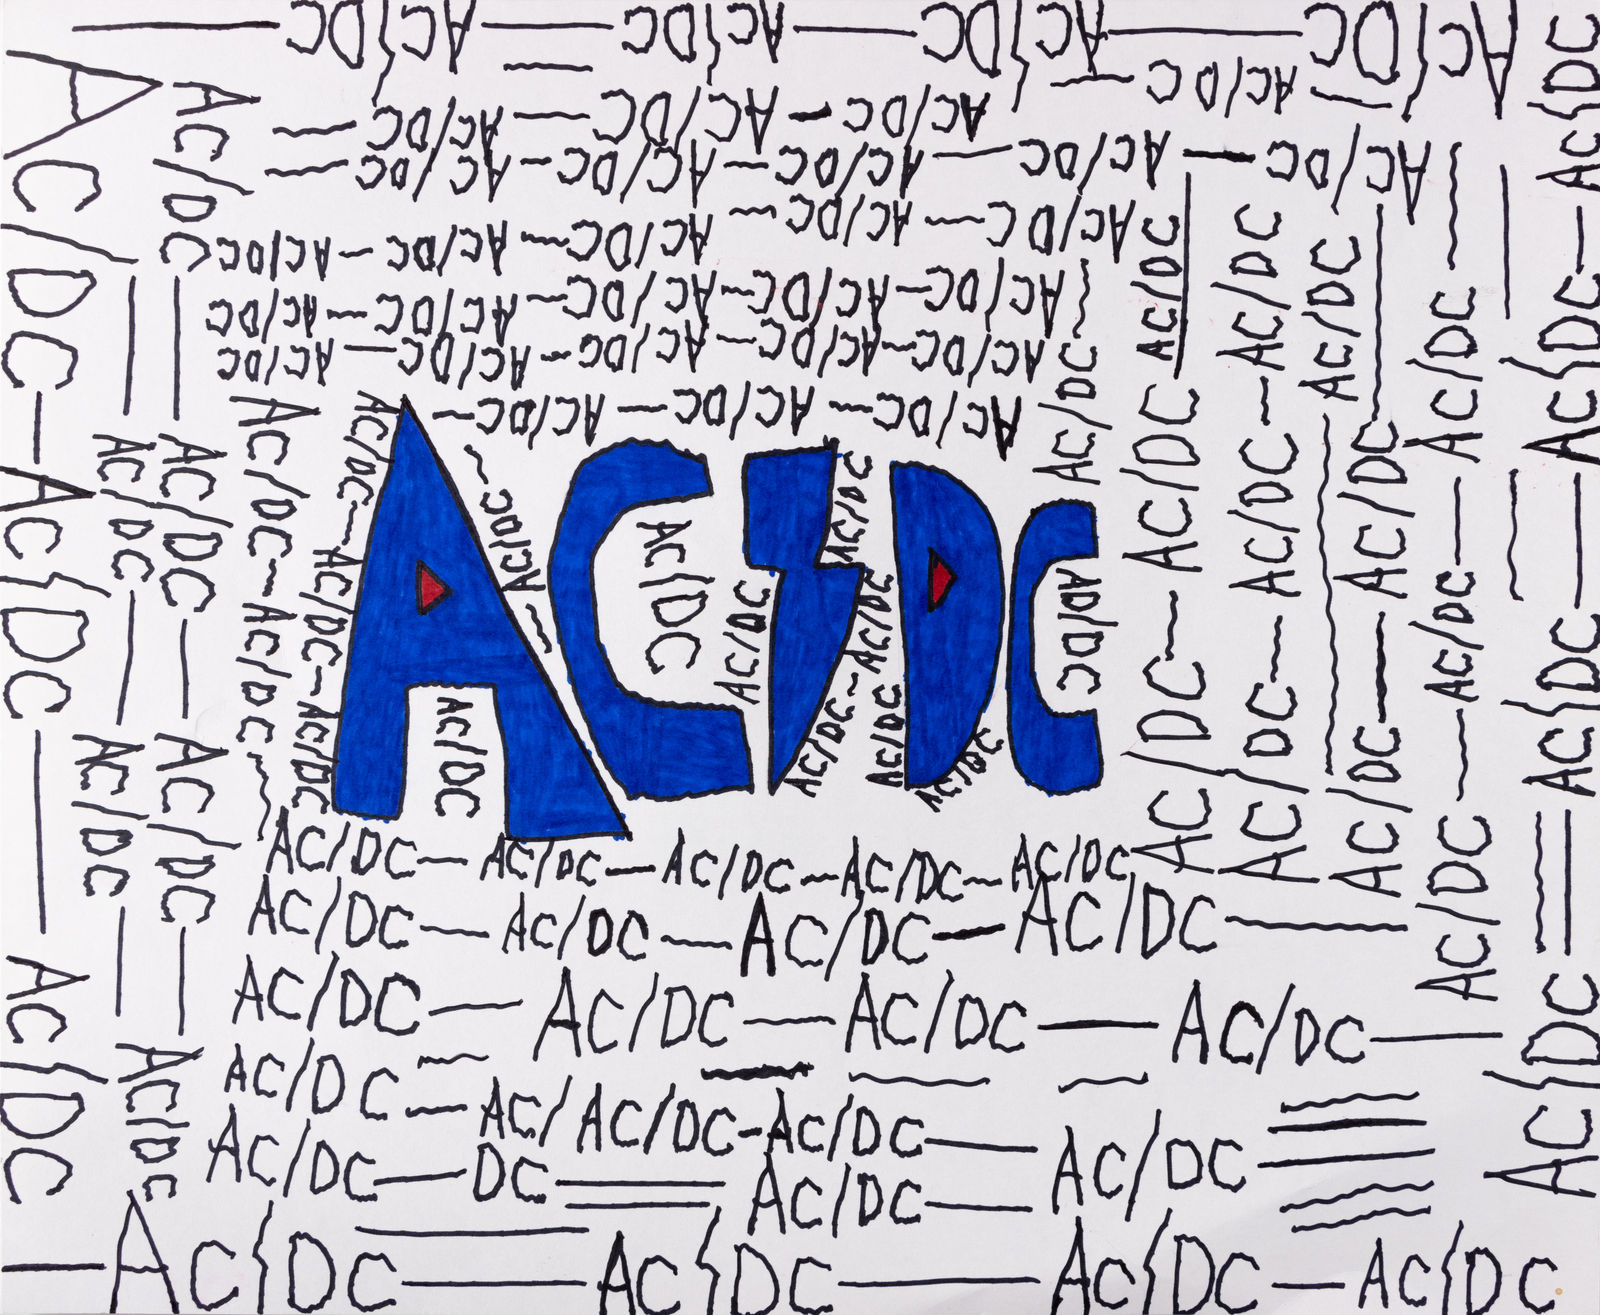 AC/DC — AC/DC — AC/DC — AC/DC
AC/DC
AC/DC — AC/DC — AC/DC
AC/DC — AC/DC — AC/DC — AC/DC — AC/DC
AC/DC — AC/DC — AC/DC — AC/DC — AC/DC
AC/DC — AC/DC — AC/DC — AC/DC — AC/DC
AC/DC — AC/DC — AC/DC — AC/DC — AC/DC
AC/DC — AC/DC — AC/DC
AC/DC — AC/DC — AC/DC
AC/DC — AC/DC — AC/DC — AC/DC
AC/DC — AC/DC
AC/DC — AC/DC
AC/DC — AC/DC — AC/DC
AC/DC
AC/DC
AC/DC
AC/DC
AC/DC
AC/DC
AC/DC — AC/DC
AC/DC
AC/DC
AD/DC
AC/DC
AC/DC
AC/DC — AC/DC
AC/DC — AC/DC — AC/DC
AC/DC — AC/DC
AC/DC
AC/DC — AC/DC — AC/DC
AC/DC — AC/DC — AC/DC — AC/DC
AC/DC — AC/DC — AC/DC — AC/DC — AC/DC
AC/DC — AC/DC — AC/DC — AC/DC
AC/DC — AC/DC — AC/DC — AC/DC
AC/DC — AC/ AC/DC - AC/DC —
AC/DC — DC
AC/DC —
AC/DC
— AC/DC — AC/DC — AC/DC — AC/DC